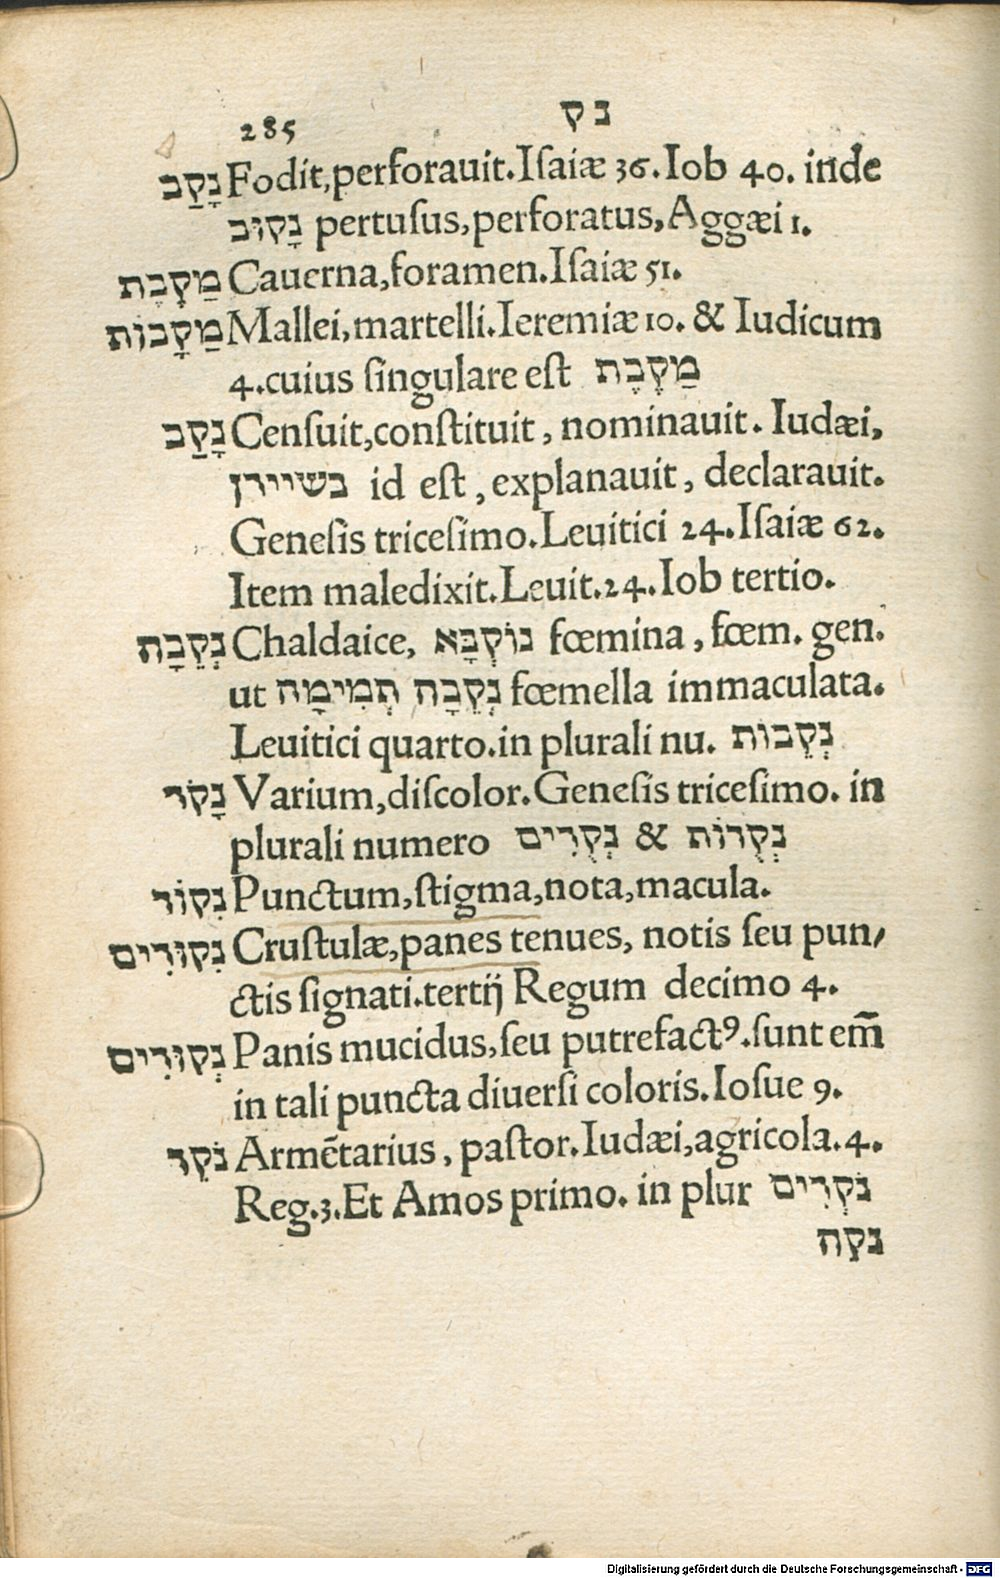 285 נק
נָקַב Fodit,perforauit.Iſaiæ 36.Iob 40. inde
נָקוּב pertuſus,perforatus,Aggæi 1.
מַקֶּבֶת Cauerna,foramen.Iſaiæ 51.
מַקָּבוֹת Mallei,martelli.Ieremiæ 10. & Iudicum
4.cuius ſingulare eſt מַקֶּבֶת
נָקַב Cenſuit,conſtituit, nominauit. Iudæi,
בשיירן id eſt, explanauit, declarauit.
Geneſis triceſimo.Leuitici 24.Iſaiæ 62.
Item maledixit.Leuit.24.Iob tertio.
נְקֵבָה Chaldaice, נוֹקְבָּא fœmina, fœm. gen.
ut נְקֵבָה תְּמִימָה fœmella immaculata.
Leuitici quarto.in plurali nu. נְקֵבוֹת
נָקֹד Varium,diſcolor.Geneſis triceſimo. in
plurali numero נְקֻדִים & נְקֻדוֹת
נִקוֹד Punctum,ſtigma,nota,macula.
נִקוּדִים Cruſtulæ,panes tenues, notis ſeu pun/
ctis ſignati.tertij Regum decimo 4.
נְקוּדִים Panis mucidus,ſeu putrefactꝰ.ſunt em̃
in tali puncta diuerſi coloris.Ioſue 9.
נֹקֵד Armẽtarius, paſtor.Iudæi,agricola.4.
Reg.3.Et Amos primo. in plur נֹקְדִים
נקה